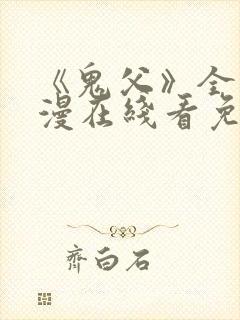 《鬼父》全
漫在线看免
齐白石